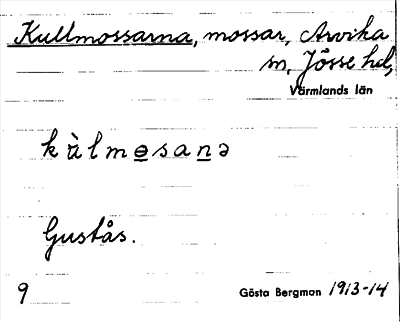 Kullmossarna, mossar, Arvika
sn, Jösse hd,
Värmlands län
kùlmo̲san̲ə
Gustås.
9 Gösta Bergman 1913-14